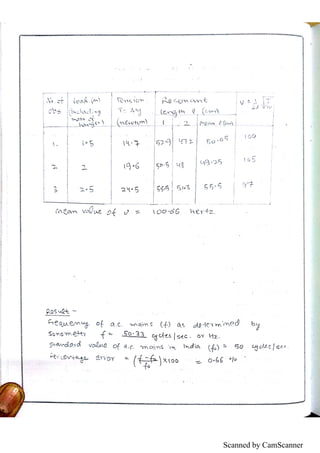 No of Load (m) Tension Resonant ν = 1/2l √T/m
obs (Including T = Mg length l (cm)
mass of hanger) (newton) 1 2 Mean l (cm)
1. 1.5 14.7 100
2. 2 19.6 50.5 48 49.25 105
3 2.5 24.5 54.3 55.5 97
mean value of ν = 100.66 hertz
Result -
Frequency of a.c. mains (f) as determined by
Sonometer f = 50.33 cycles/sec. or Hz.
Standard value of a.c. mains in India (f₀) = 50 cycles/sec.
Percentage error = (f-f₀/f₀) x100 = 0.66 %
Scanned by CamScanner